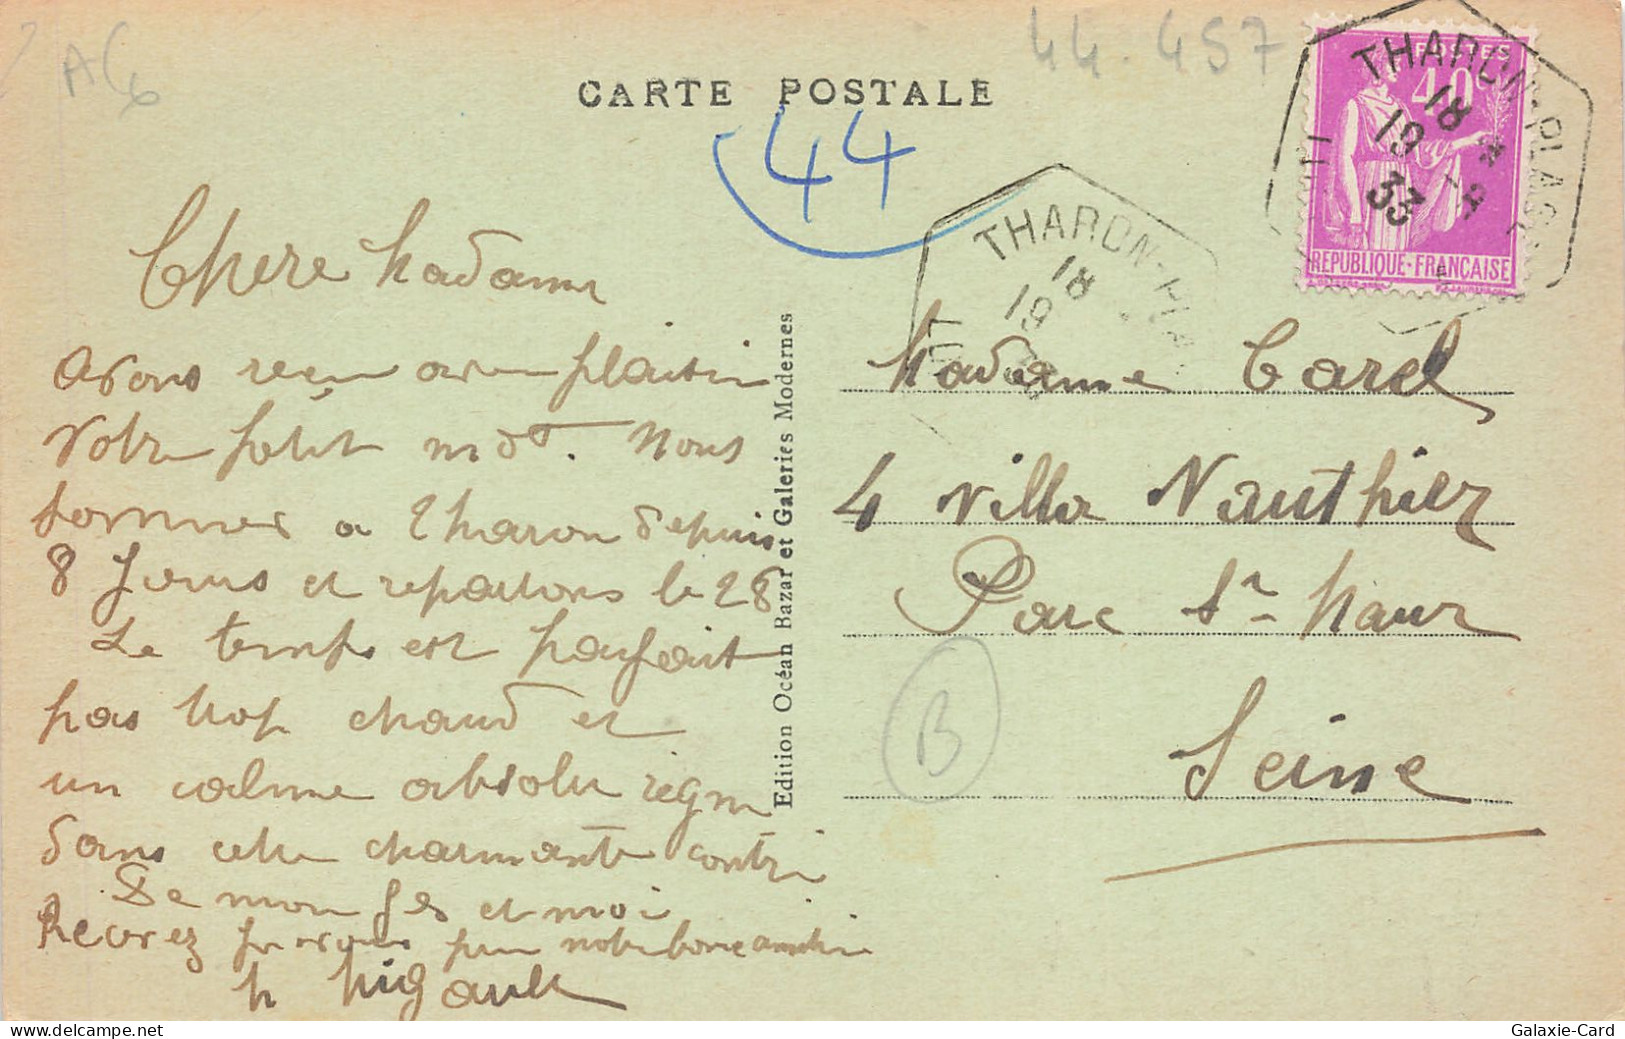 AC6
44.457
CARTE POSTALE
44
POSTES
40c
REPUBLIQUE-FRANÇAISE
THARON-PLAGE
18
19
33
THARON-PLA
18
19
Chere Madame
avons reçu avec plaisir
votre petit mot. Nous
sommes a Tharon depuis
8 Jours et repartons le 28
Le temps est parfait
pas trop chaud et
un calme absolu règne
dans cette charmante contré
De mon fes et moi
Recevez pour vous notre bonne amitié
M Migault
Edition Océan Bazar et Galeries Modernes
Madame Carel
4 villa Nauthier
Parc St- Maur
Seine
B
www.delcampe.net
Galaxie-Card